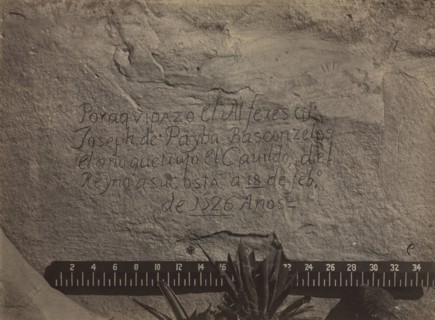 Por aqui pazo el Alferes Dn
Joseph de Payba Basconzelos
el año que trujo el Cauildo del
Reyno a su costa a 18 de feb°
de 1726 Años
2 4 6 8 10 12 14 16 22 24 26 28 30 32 34